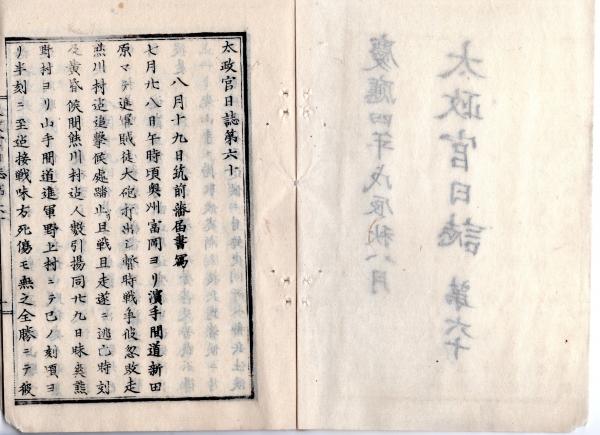 太政官日誌 第六十
慶應四年戊辰秋八月
太政官日誌第六十
八月十九日筑前藩届書寫
七月廿八日午時頃奥州富岡ヨリ濱手間道新田
原マテ進軍賊徒大砲打出シ暫時戦争彼忽敗走
熊川村迄追撃候處踏止リ且戦且走遂ニ逃亡時刻
及黄昏候間熊川村迄人數引揚同廿九日昧爽熊
野村ヨリ山手間道進軍野上村ニテ巳ノ刻頃ヨ
リ半刻ニ至迄接戦味方死傷モ無之全勝ニテ彼